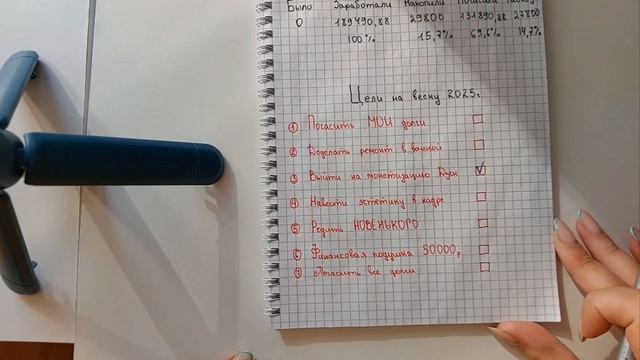 Было Заработали Накопили Погасили Расход
0 189490,88 29800 131890,88 27800
100% 15,7% 69,6% 14,7%
Цели на весну 2025г.
1 Погасить МОИ долги
2 Доделать ремонт в ванной
3 Выйти на монетизацию Дуси
4 Навести эстетику в кадре
5 Родить НОВЕНЬКОГО
6 Финансовая подушка 50000р.
7 Погасить все долги